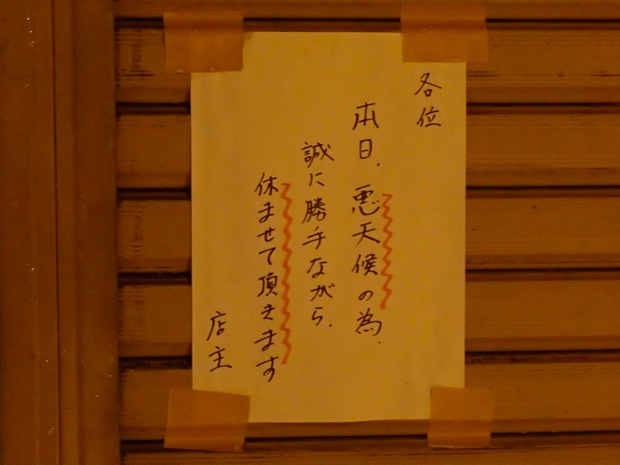 各位
本日、悪天候の為、
誠に勝手ながら、
休ませて頂きます
店主